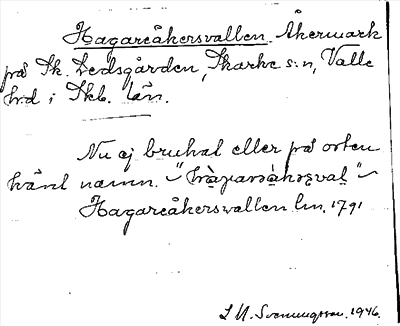 Hagareåkersvallen. Åkermark
på Sk. Ledsgården, Skarke s:n, Valle
h:d i Skb. län.
Nu ej brukat eller på orten
känt namn.
Hagareåkersvallen lm. 1791
S M. Svenungsson. 1946.